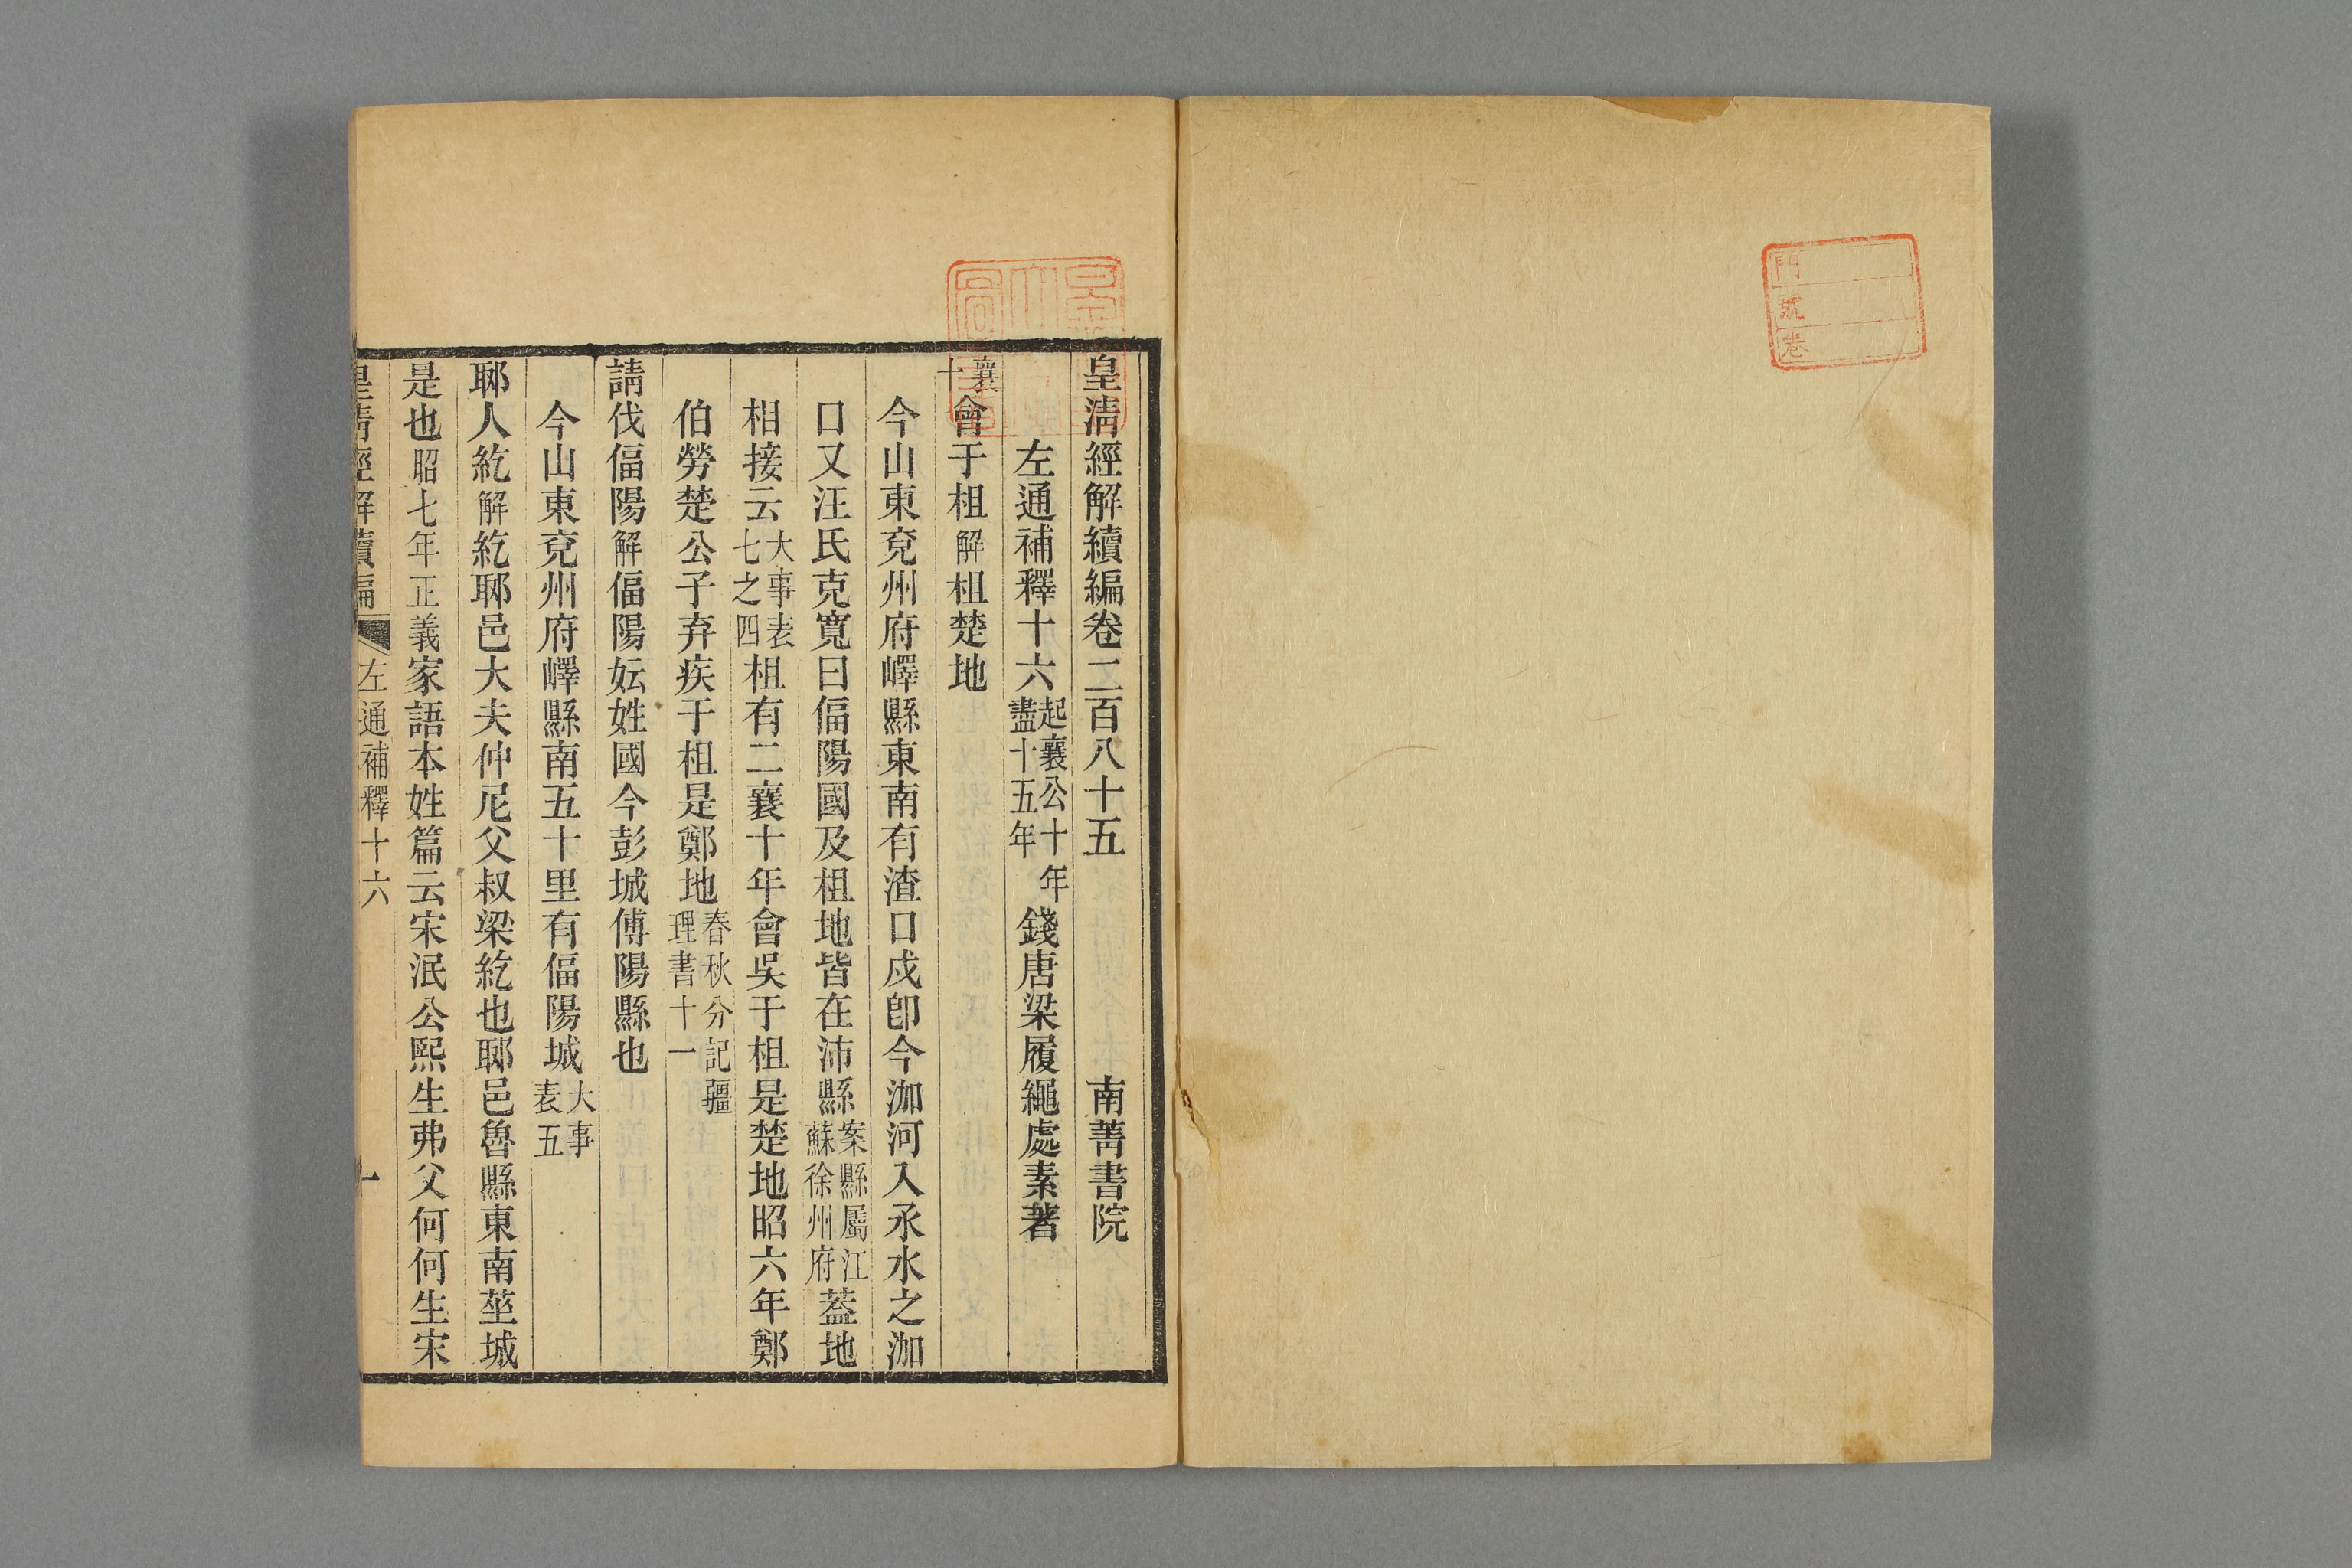 門
號
卷
皇清經解續編卷二百八十五 南菁書院
左通補釋十六 起襄公十年盡十五年 錢唐梁履繩處素著
襄十 會于柤 解柤楚地
今山東兗州府嶧縣東南有渣口戍卽今泇河入氶水之泇
口又汪氏克寬曰偪陽國及柤地皆在沛縣 案縣屬江蘇徐州府 葢地
相接云 大事表七之四 柤有二襄十年會吳于柤是楚地昭六年鄭
伯勞楚公子弃疾于柤是鄭地 春秋分記疆理書十一
請伐偪陽 解偪陽妘姓國今彭城傅陽縣也
今山東兗州府嶧縣南五十里有偪陽城 大事表五
郰人紇 解紇郰邑大夫仲尼父叔梁紇也郰邑魯縣東南莝城
是也 昭七年正義家語本姓篇云宋泯公熙生弗父何何生宋
皇清經解續編 左通補釋十六 一